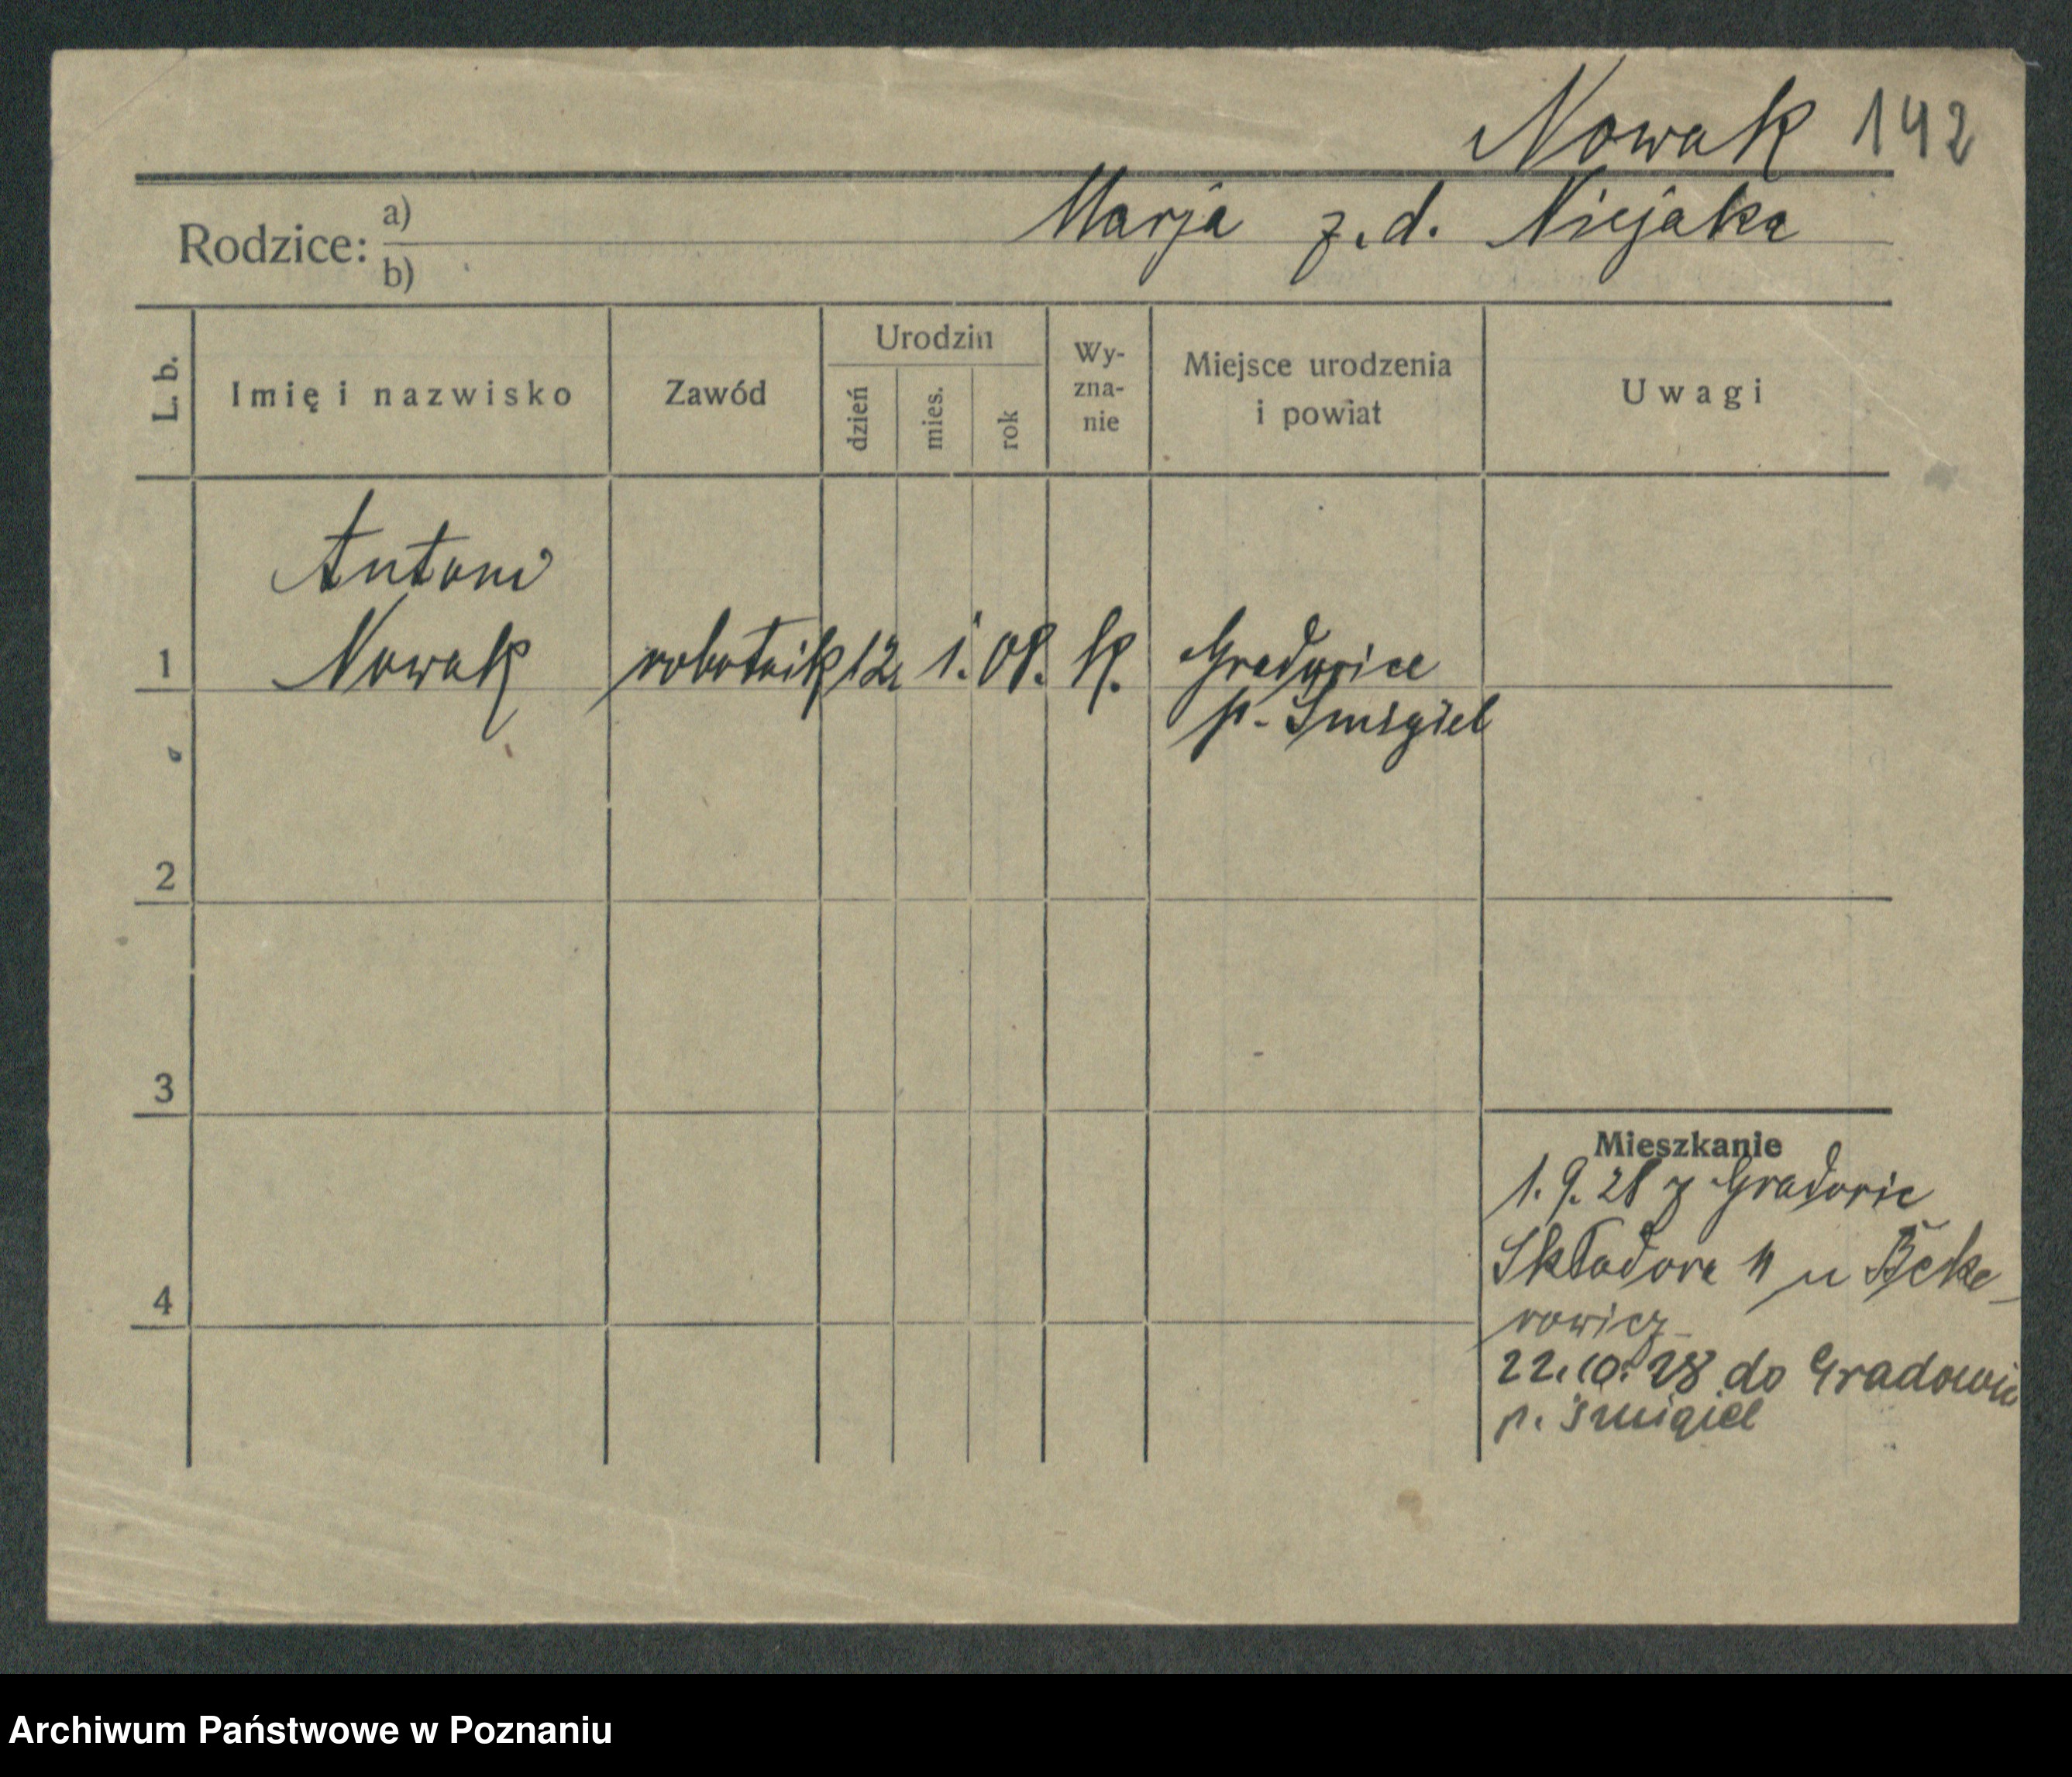 Nowak 142
Rodzice: a) Marja z. d. Niejaka
b)
L. b. Imię i nazwisko Zawód Urodzin dzień mies. rok Wy-zna-nie Miejsce urodzenia i powiat Uwagi
Antoni
1 Nowak robotnik 12. 1. 08. K. Gradowice
p. Śmigiel
2
3
Mieszkanie
1. 9. 28 z Gradowic
Składowa 4 u Beke-
4
rowicz
22.10.28 do Gradowic
p. Śmigiel
Archiwum Państwowe w Poznaniu